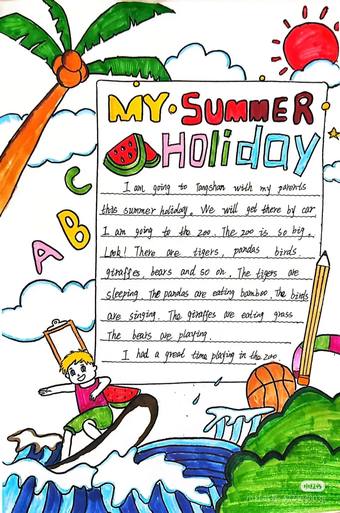 MY·SUMMER
Holiday
C
B
A
I am going to Tangshan with my parents
this summer holiday. We will get there by car
I am going to the zoo. The zoo is so big.
Look! There are tigers, pandas birds.
giraffes, bears and so on. The tigers are
sleeping. The pandas are eating bamboo. The birds
are singing. The giraffes are eating grass
The bears are playing.
I had a great time playing in the zoo.
小红书